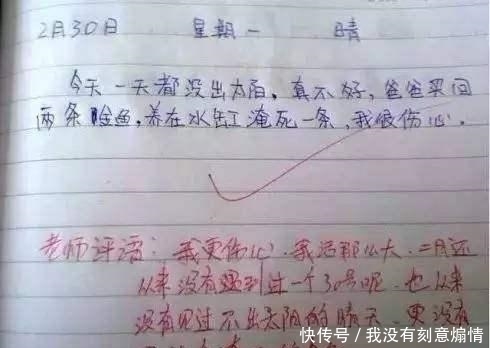 2月30日 星期一 晴
今天一天都没出太阳,真不好,爸爸买回
两条鲶鱼,养在水缸淹死一条,我很伤心。
老师评语:我更伤心.我活那么大.二月还
从来没有遇到过一个30号呢.也从来
没有见过不出太阳的晴天.更没有
快传号/我没有刻意煽情